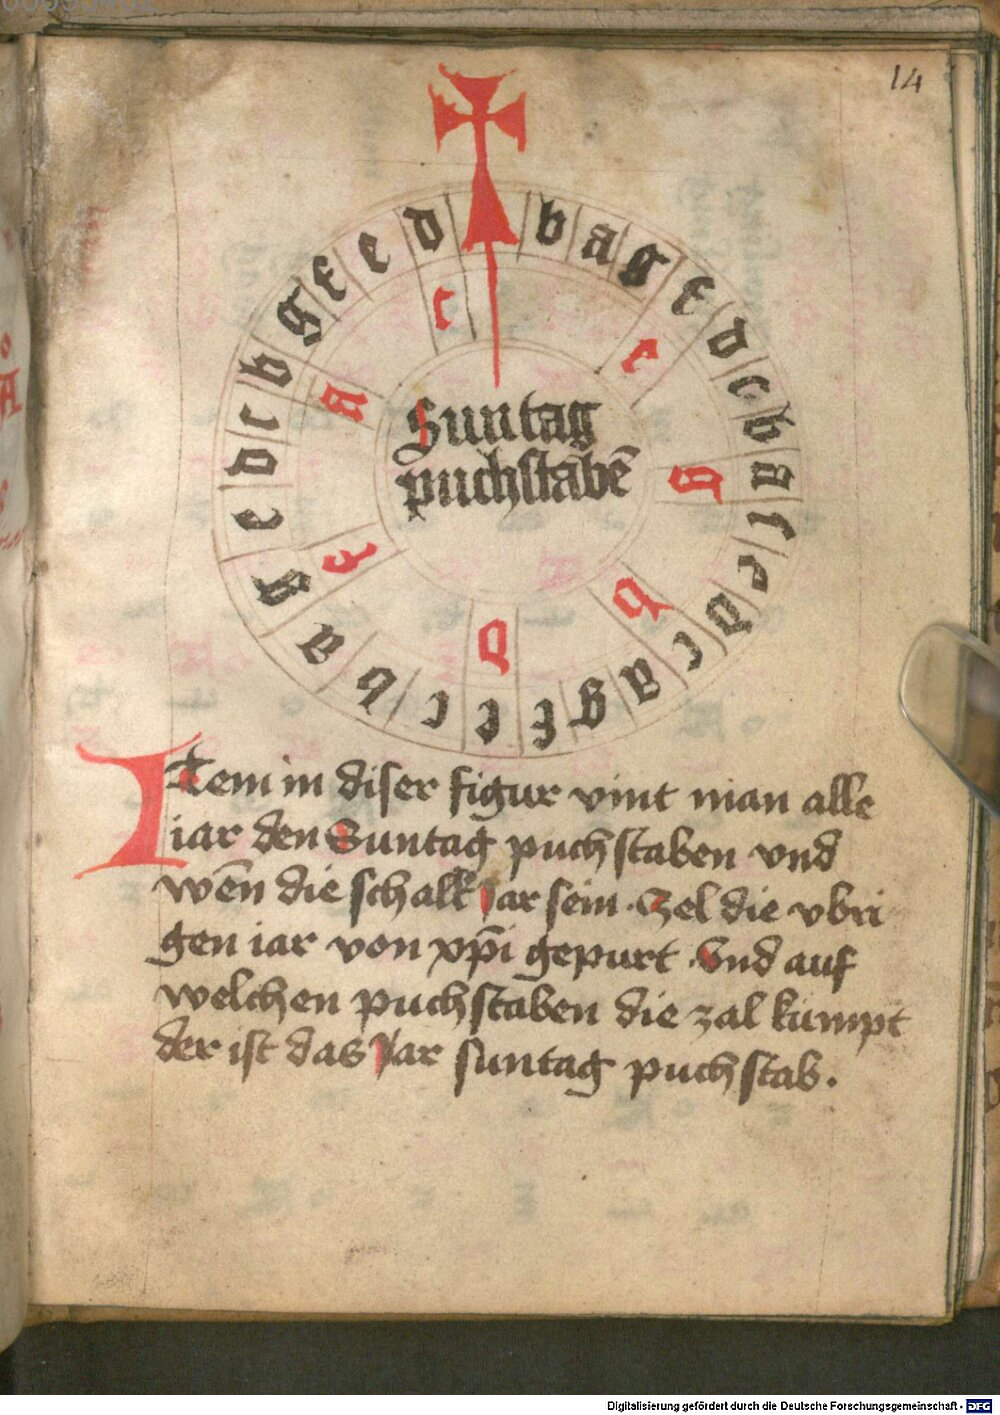 14
b a g f d c b A f e d c A g f e c b a g e d c b g f e d
c e g b d f A
Suntag
puchstabē
Item in diser figur vint man alle
iar den Suntag puchstaben vnd
wēn die schalk Jar sein . Zel die vbri
gen iar von xp̄i gepurt . Vnd auf
welchen puchstaben die zal kumpt
der ist das Jar suntag puchstab .
Digitalisierung gefördert durch die Deutsche Forschungsgemeinschaft - DFG